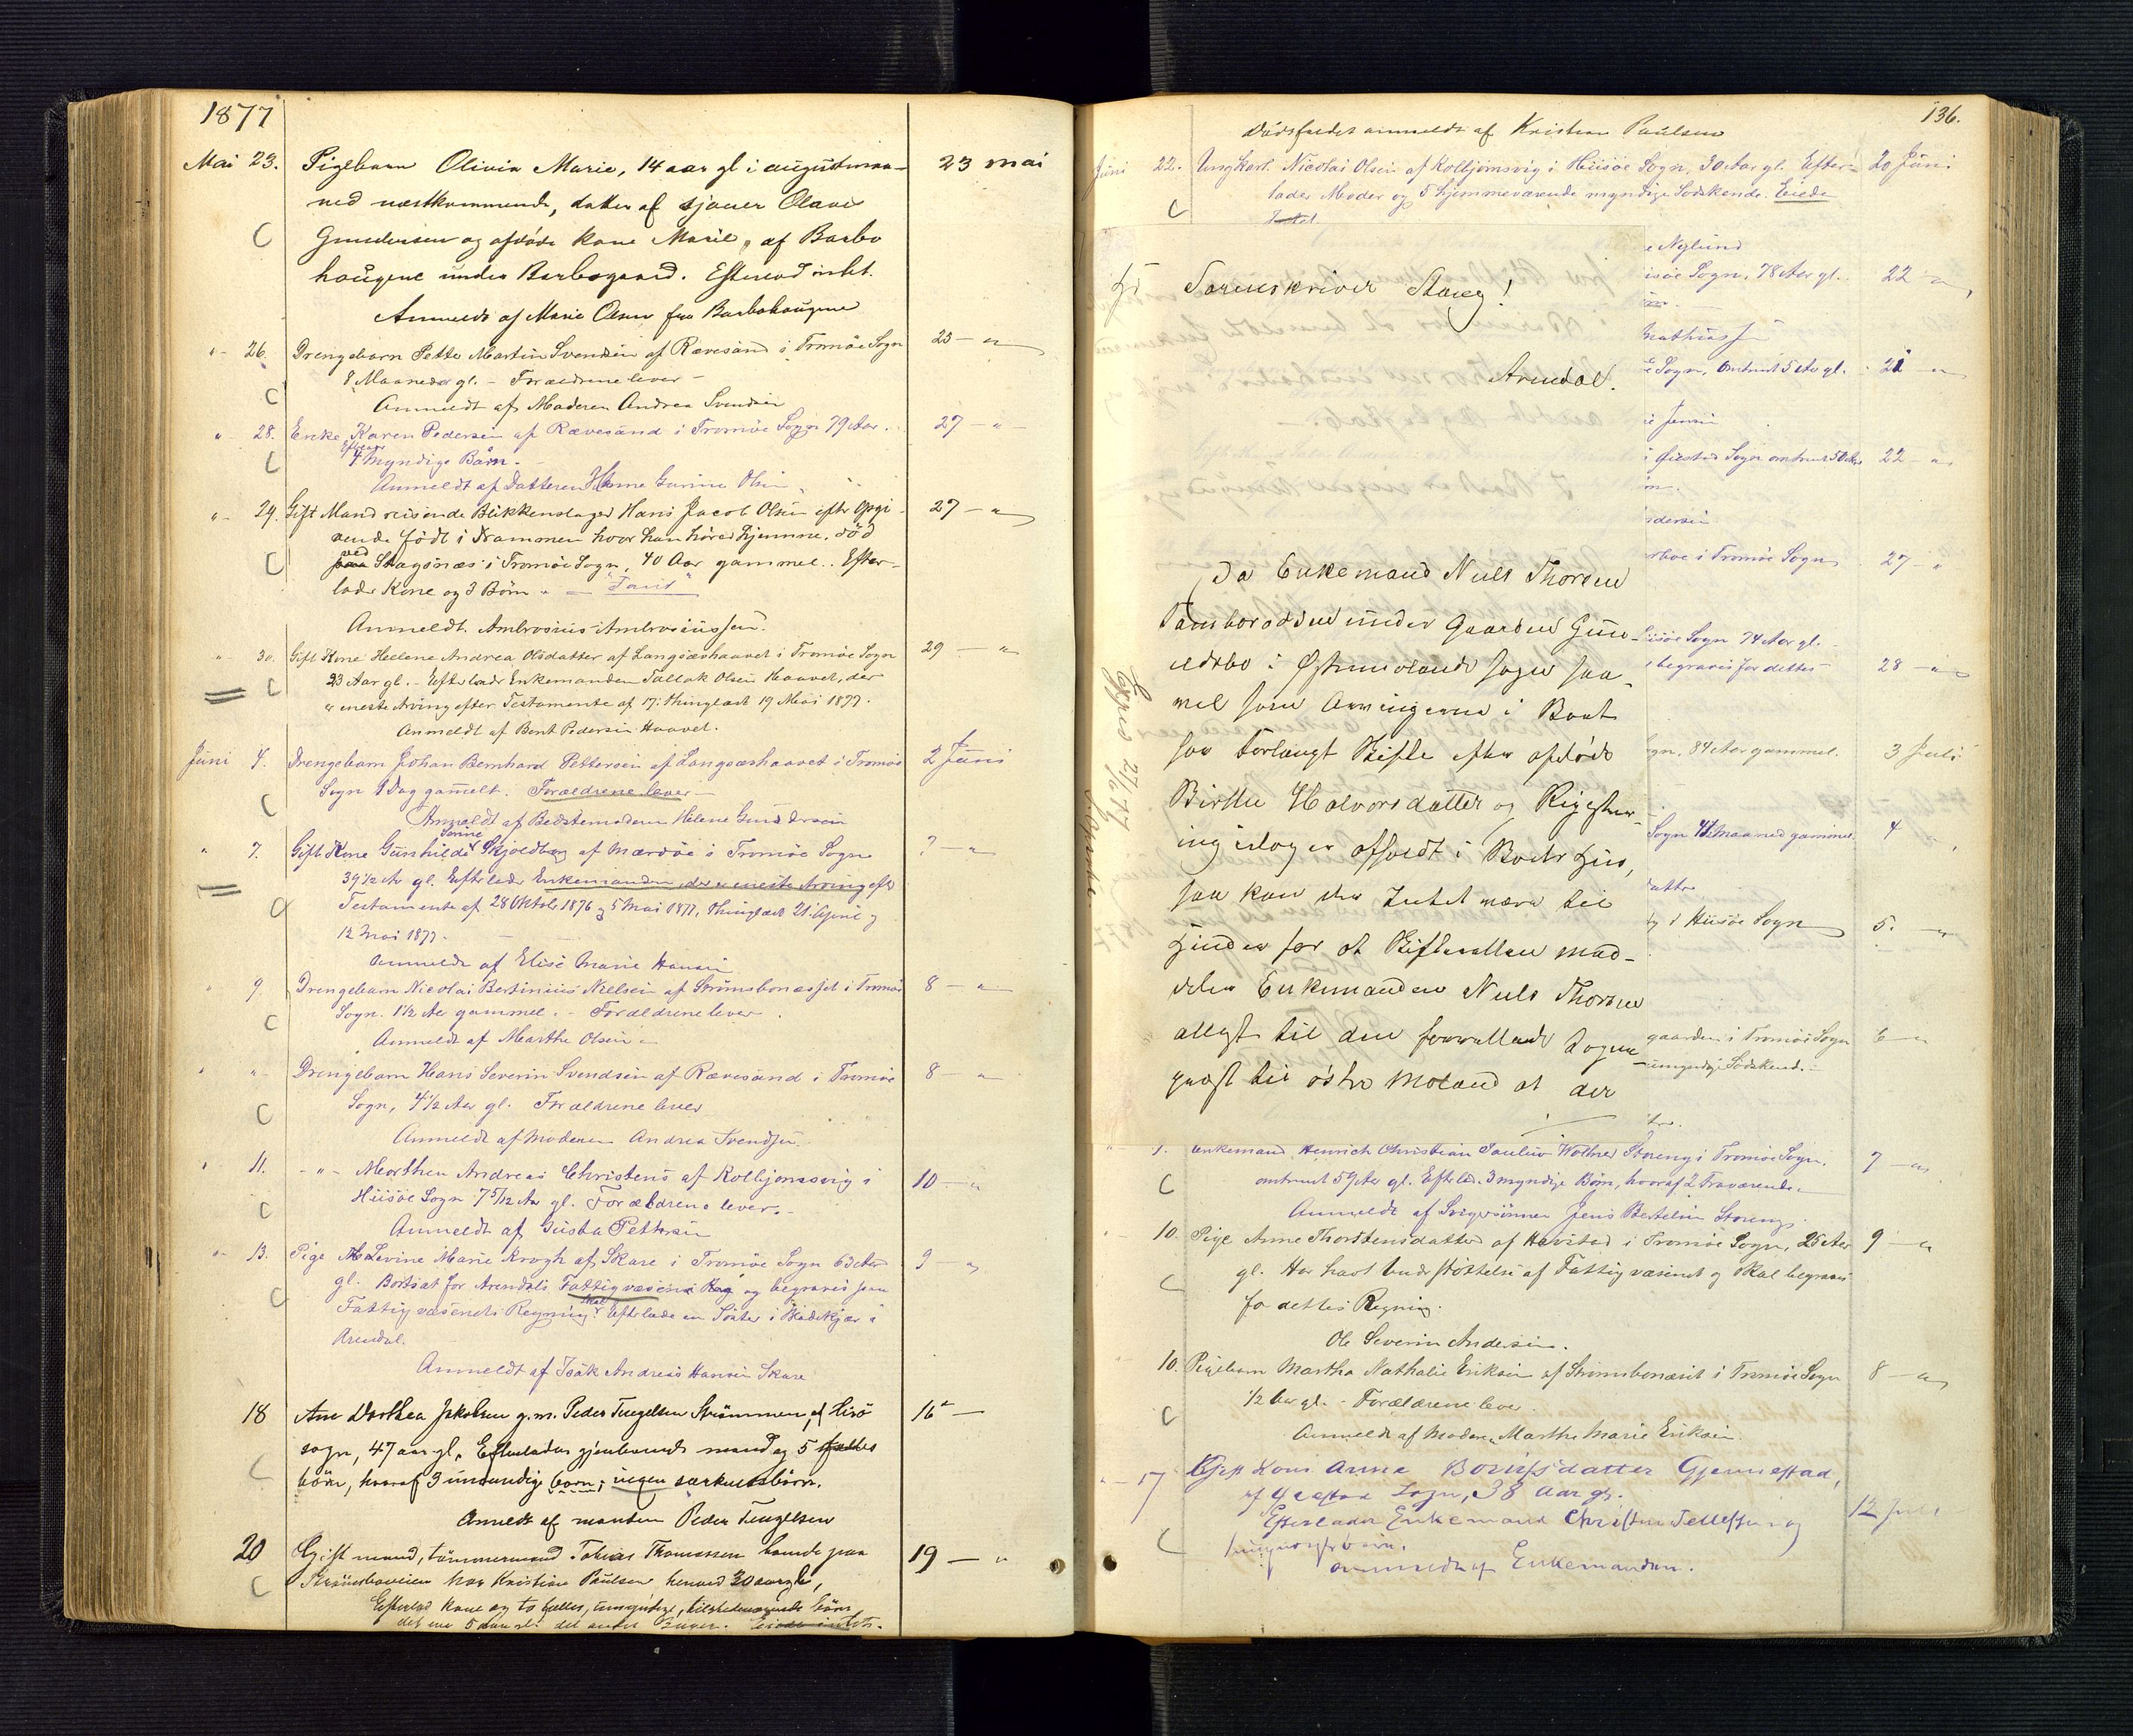 1877
Mai 23. Pigebarn Olivia Marie, 14 aar gl i august maa- 23 mai
ned næstkommende, datter af sjøuer Olave
C Gundersen og afdøde kone Marie, af Barbo
haugene under Barbogaard. Efterlod intet.
Anmeldt af Marie Olsen fra Barbohaugene
" - 26. Drengebarn Petter Martin Svendsen af Rævesand i Tromøe Sogn 25 - "
8 Maaneder gl. - Forældrene lever -
C Anmeldt af Moderen Andrea Svendsen
" 28. Enke Karen Pedersen af Rævesand i Tromöe Sogn 79 Aar. 27 - " -
C 4 Myndige Børn. -
Anmeldt af Datteren Hanne Gurine Olsen
" - 29. Gift Mand reisende Blikkenslager Hans Jacob Olsen efter Opgi- 27 - "
vende født i Drammen hvor han hører hjemme, død
C ved Skagsnæs i Tromöe Sogn, 40 Aar gammel. Efter-
lader Kone og 3 Børn - "Fant"
Anmeldt. Ambrosius Ambrosiussen.
" 30. Gift Kone Helene Andrea Olsdatter af Langsæshaavet i Tromøe Sogn 29 - "
C 23 Aar gl. - Efterlader Enkemanden Tallak Olsen Haavet, der
er eneste Arving efter Testamente af 17. thinglæst 19 Mai 1877.
Anmeldt af Bent Pedersen Haavet.
Juni 4. Drengebarn Johan Bernhard Pettersen af Langsæshaavet i Tromøe 2 Juni
C Sogn 1 Dag gammelt. Forældrene lever -
Anmeldt af Bedstemoderen Helene Gundersen
" 7. Gift Kone Gunhilde Sørine Skjoldberg af Mærdøe i Tromøe Sogn ? - "
39 1/2 Ar gl. Efterlader Enkemanden, der er eneste Arving eft
C Testamente af 28 Oktob 1876 og 5 Mai 1877, thinglæst 21 April og
12 Mai 1877. -
Anmeldt af Elise Marie Hansen
" 9. Drengebarn Nicolai Bertinius Nielsen af Strømsbonæsset i Tromøe 8 - "
C Sogn. 1 1/2 Aar gammel. - Forældrene lever.
Anmeldt af Marthe Olsen -
" " - Drengebarn Hans Severin Svendsen af Rævesand i Tromøe 8 - "
C Sogn, 4 1/2 Aar gl. Forældrene lever
Anmeldt af Moderen Andrea Svendsen.
" 11. - " - Morthen Andreas Christens af Kolbjørnsvig i 10 - "
C Hisøe Sogn 7 5/12 Aar gl. Forældrene lever. -
Anmeldt af Gusta Pettersen
" - 13. Pige Levine Marie Krogh af Skare i Tromøe Sogn 63 Aar 9 - "
C gl. Bortsat for Arendals Fattigvæsens Reg og begraves paa
Fattigvæsenets Regning. Skal efterlade en Søster i Bødekjær i
Arendal.
Anmeldt af Isak Andreas Hansen Skare
18 Ane Dorthea Jakobsen g. m. Peder Tengelsen Strømmen, af Hisö 16 -
sogn, 47 aar gl. Efterlader gjenlevende mand og 5 fælles
C börn, hvoraf 3 umyndige børn; ingen særkuldsbörn.
Anmeldt af manden Peder Tengelsen
20 Gift mand, tømmermand Tobias Thomassen boende paa 19 - "
C Strømsboveien hos Kristian Paulsen henved 30 aar gl,
Efterlod kone og to fælles, umyndige, tilstedeværende börn
det ene 5 aar gl. det andet Eiede intet.
136.
Dødsfaldet anmeldt af Kristian Paulsen
Juni 22. Ungkarl Nicolai Olsen af Kolbjørnsvig i Hisøe Sogn, 30 Aar gl. Efter- 20 Juni
C lader Moder og 5 hjemmeværende myndige Sødskende. Eiede
Intet.
e Nylund
isøe Sogn, 78 Aar gl. 22 - "
Mathiassen
e Sogn, omtrent 5 Aar gl. 21 - "
e Jensen
i Øiestad Sogn omtrent 50 Aar 22 - "
ndersen
arboe i Tromøe Sogn 27 - "
Hisøe Sogn 74 Aar gl.
begraves for dettes 28 - "
Sogn, 84 Aar gammel. 3 Juli
Sogn 4 1/2 Maaned gammel. 4 "
datter
g i Hisøe Sogn 5. - "
gaarden i Tromøe Sogn 6 - "
umyndige Sødskende. -
Hr Sorenskriver Stang!
Arendal.
Da Enkemand Niels Thorsen
Tamborodden under Gaarden Gun-
nedsbo i Østremolands sogn saa-
vel som Arvingerne i Boet
har forlangt Skifte efter afdøde
Birthe Halvorsdatter og Rigester-
ing idag er afholdt i Boets Hus,
saa kan der Intet være til
Hinder for at Skifteretten med-
deler Enkemanden Niels Thorsen
attest til den forrettende Sogne-
præst til østre Moland at der
Expd 27/6 77
" 7. Enkemand Henrich Christian Paulin Wolner Storeng i Tromöe Sogn, 7 - "
C omtrent 59 Aar gl. Efterlod. 3 myndige Børn, hvoraf 2 fraværende. -
Anmeldt af Svigersønnen Jens Bertelsen Storeng.
10. Pige Anne Thorstensdatter af Havstad i Tromøe Sogn, 25 Aar 9 - "
C gl. Har havt Understøttelse af Fattigvæsenet og skal begraves
for dettes Regning.
Ole Severin Andersen.
10. Pigebarn Martha Nathalie Eriksen af Strømsbonæsset i Tromøe Sogn 8 - "
C 1/2 Aar gl. - Forældrene lever.
Anmeldt af Moderen Marthe Marie Eriksen.
" - 17 Gift Kone Anne Bornipsdatter Gjennestad,
af Øiestad Sogn, 38 Aar gl. 12 Juli
C Efterlader Enkemand Christen Tellefsen og
umyndige børn.
anmeldt af Enkemanden.